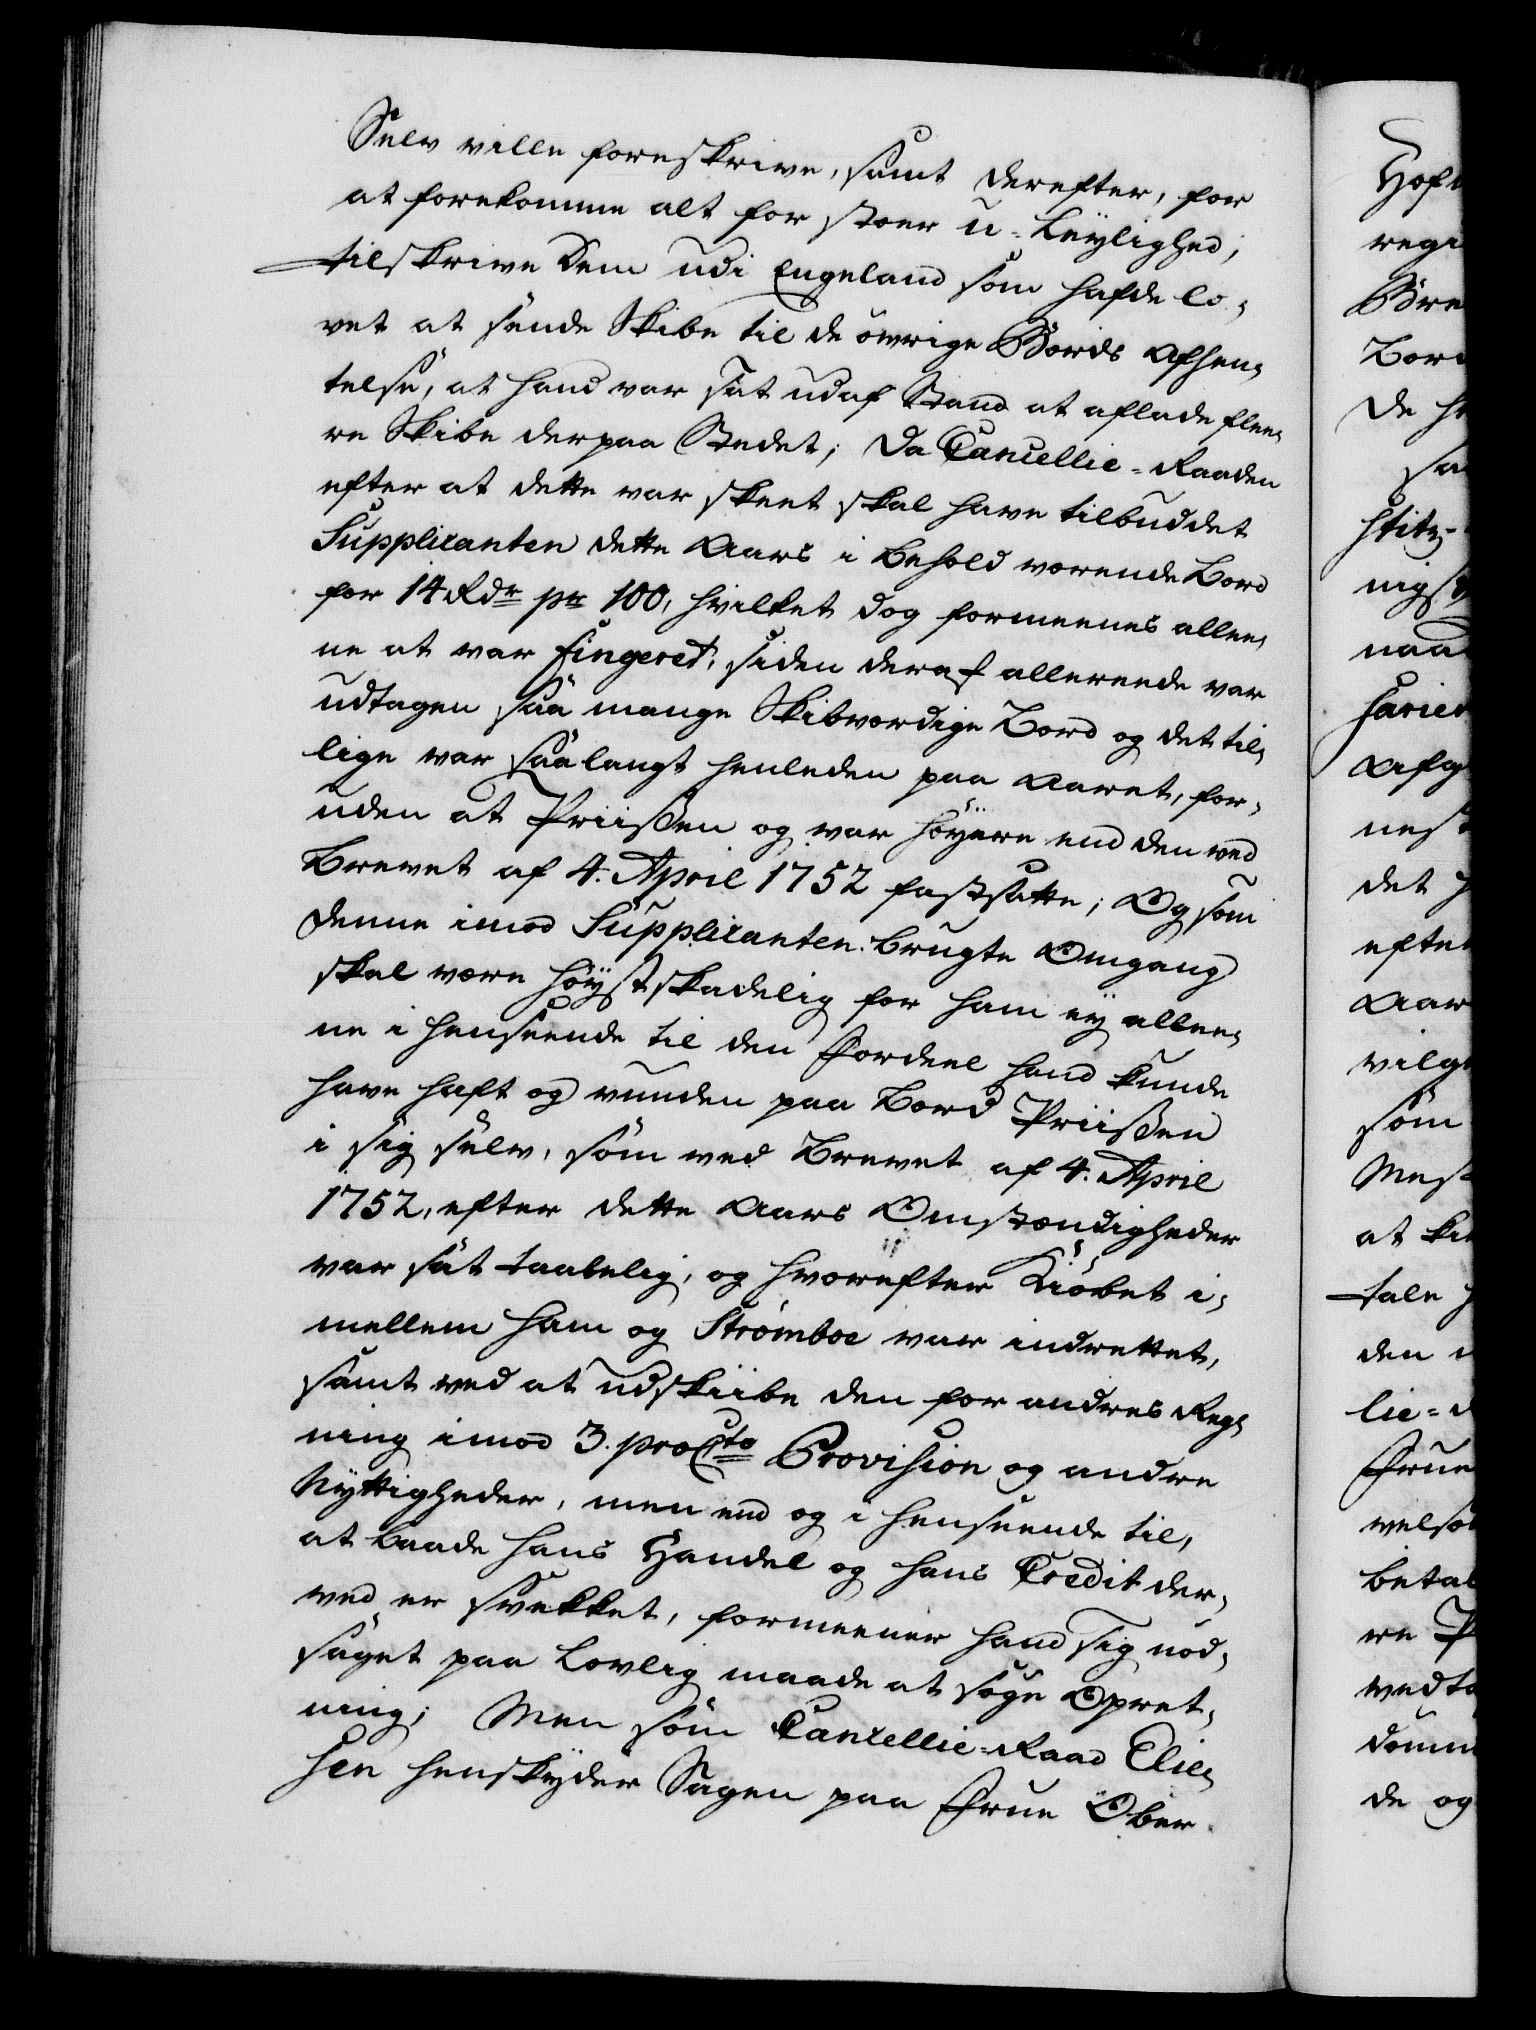 Selv ville foreskrive, samt derefter, for
at forekomme alt for stoer u-Leylighed,
tilskrive dem udi Engeland som hafde lo-
vet at sende Skibe til de øvrige Bords Afhen-
telse, at hand var sat udaf Stand at aflade flee-
re Skibe derpaa Stedet; Da Cancellie-Raaden
efter at dette var skeet skal have tilbuddet
Supplicanten dette Aars i behold værende Bord
for 14 Rdr pr 100, hvilket dog formeenes allee-
ne at var fingeret, siden deraf allereede var
udtagen saa mange Skibværdige Bord og det til-
lige var saa langt henleden paa Aaret, for-
uden at Priisen og var høyere end den ved
Brevet af 4. April 1752 fastsatte; Og som
denne imod Supplicanten brugte Omgang
skal være høyst skadelig for ham ey allee-
ne i henseende til den Fordeel hand kunde
have haft og vunden paa Bord Priisen
i sig selv, som ved Brevet af 4. April
1752, efter dette Aars Omstændigheder
var sat taalelig, og hvorefter Kiøbet i-
mellem ham og Strømboe var indrettet,
samt ved at udskiibe den for andres Reg-
ning imod 3. proCto Provision og andre
Nyttigheder, men end og i henseende til,
at baade hans Handel og hans Credit der-
ved er svekket, formeener hand sig nød-
saget paa Lovlig maade at søge Opret-
ning; Men som Cancellie-Raad Elie-
sen henskyder Sagen paa Frue Ober-
Hof
regi
Bre
Bord
de
sa
naad
Afg
nest
det
efter
Aar
som
Mest
at
tale
den
lie-
Frue
betal
re
vedt
de og